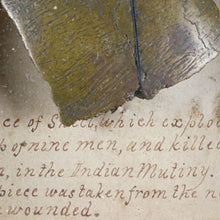 ce of Shell, which explo
p of nine men, and killed
n, in the Indian Mutiny.
piece was taken from the n
e wounded.